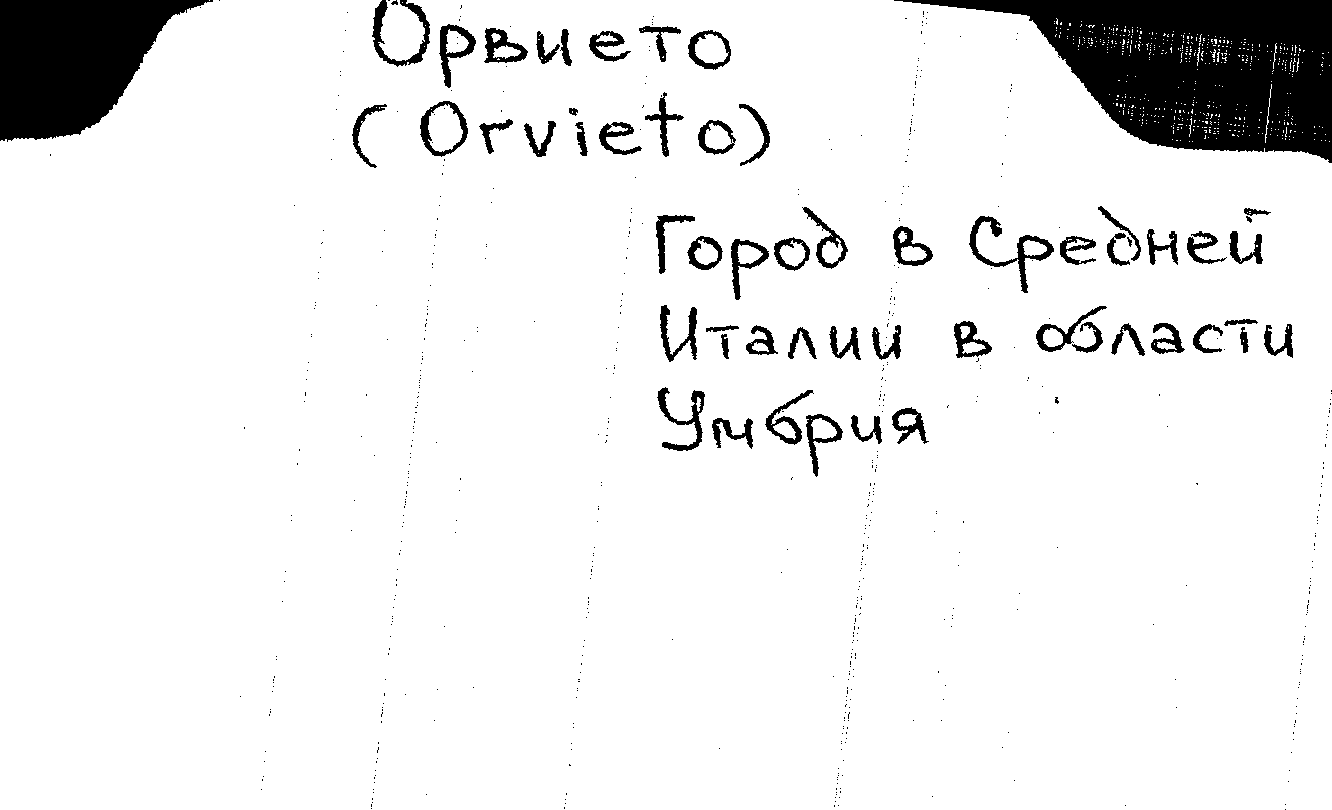 Орвието
(Orvieto)
Город в Средней
Италии в области
Умбрия